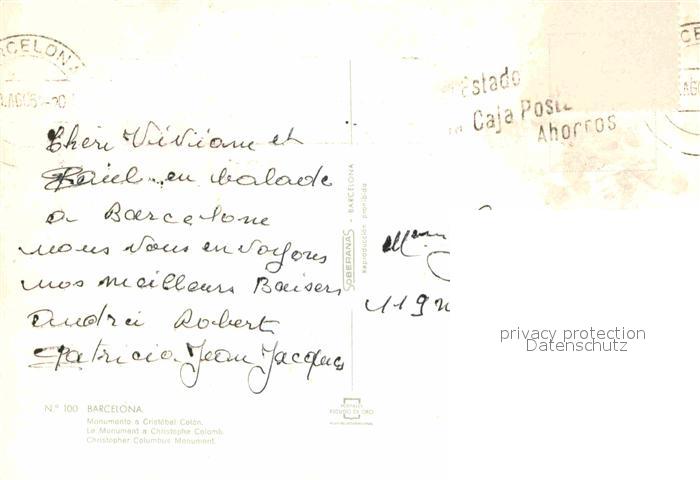 BARCELONA
Estado
Caja Posta
Ahorros
Cheri Viviane et
Paul.. en balade
a Barcelone
nous vous envoyons
nos meilleurs Baisers
André Robert
Patricia Jean Jacques
SOBERANAS - BARCELONA
Reproducción prohibida
119
privacy protection
Datenschutz
N.º 100 BARCELONA.
Monumento a Cristóbal Colón.
Le Monument a Christophe Colomb.
Christopher Columbus Monument.
POSTALES
ESCUDO DE ORO